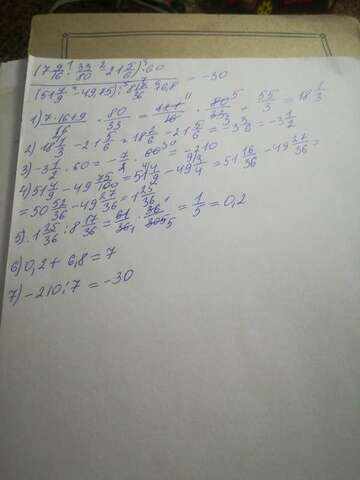 (7 9/16 : 33/80 - 21 5/6) · 60
(51 4/9 - 49,75) : 8 17/36 + 6,8 = -30
1) 7·16+9/16 · 80/33 = 121/16 · 80/33 = 55/3 = 18 1/3
2) 18 1/3 - 21 5/6 = 18 2/6 - 21 5/6 = -3 3/6 = -3 1/2
3) -3 1/2 · 60 = -7/2 · 60 = -210
4) 51 4/9 - 49 75/100 = 51 4/9 - 49 3/4 = 51 16/36 - 49 27/36 =
= 50 52/36 - 49 27/36 = 1 25/36
5) 1 25/36 : 8 17/36 = 61/36 · 36/305 = 1/5 = 0,2
6) 0,2 + 6,8 = 7
7) -210 : 7 = -30